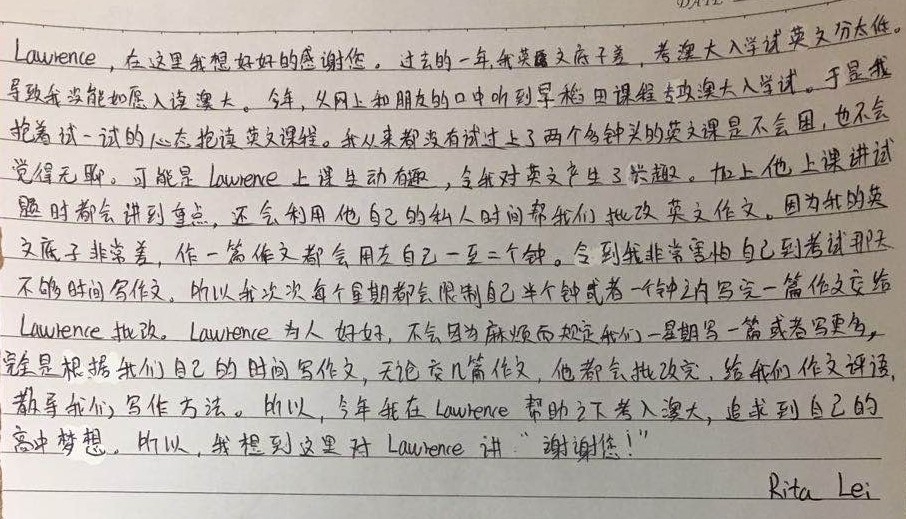 DATE
Lawrence，在这里我想好好的感谢您。过去的一年，我英文底子差，考澳大入学试英文分太低。
导致我没能如愿入读澳大。今年，从网上和朋友的口中听到早稻田课程专攻澳大入学试。于是我
抱着试一试的心态抱读英文课程。我从来都没有试过上了两个多钟头的英文课是不会困，也不会
觉得无聊。可能是Lawrence上课生动有趣，令我对英文产生了兴趣。加上他上课讲试
题时都会讲到重点，还会利用他自己的私人时间帮我们批改英文作文。因为我的英
文底子非常差，作一篇作文都会用左自己一至二个钟。令到我非常害怕自己到考试那天
不够时间写作文。所以我次次每个星期都会限制自己半个钟或者一个钟之内写完一篇作文交给
Lawrence批改。Lawrence为人好好，不会因为麻烦而规定我们一星期写一篇或者写更多，
完全是根据我们自己的时间写作文，无论交几篇作文，他都会批改完，给我们作文评语，
教导我们写作方法。所以，今年我在Lawrence帮助之下考入澳大，追求到自己的
高中梦想。所以，我想到这里对Lawrence讲“谢谢您！”
Rita Lei